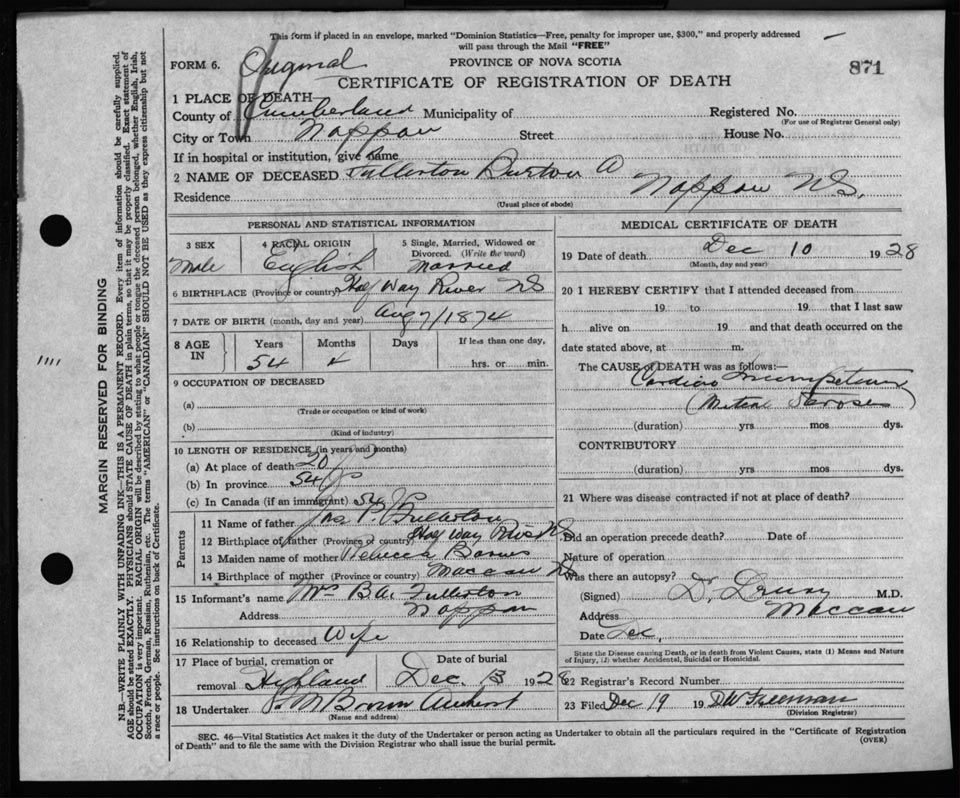 This form if placed in an envelope, marked "Dominion Statistics—Free, penalty for improper use, $300," and properly addressed
will pass through the Mail "FREE"
FORM 6. Original PROVINCE OF NOVA SCOTIA 871
CERTIFICATE OF REGISTRATION OF DEATH
1 PLACE OF DEATH—
County of Cumberland Municipality of Registered No.
(For use of Registrar General only)
City or Town Nappan Street House No.
If in hospital or institution, give name
2 NAME OF DECEASED Fullerton Burton A
Residence Nappan NS,
(Usual place of abode)
PERSONAL AND STATISTICAL INFORMATION
3 SEX 4 RACIAL ORIGIN 5 Single, Married, Widowed or
Divorced. (Write the word)
Male English Married
6 BIRTHPLACE (Province or country) Half Way River NS
7 DATE OF BIRTH (month, day and year) Aug 7/1874
8 AGE IN Years Months Days If less than one day,
54 4 hrs. or min.
9 OCCUPATION OF DECEASED
(a)
(Trade or occupation or kind of work)
(b)
(Kind of industry)
10 LENGTH OF RESIDENCE (in years and months)
(a) At place of death 20
(b) In province 54
(c) In Canada (if an immigrant) 54
Parents
11 Name of father Jas P. Fullerton
12 Birthplace of father (Province or country) Half Way River NS
13 Maiden name of mother Rebecca Barnes
14 Birthplace of mother (Province or country) Maccan NS
15 Informant's name Mrs B.A. Fullerton
Address Nappan
16 Relationship to deceased Wife
17 Place of burial, cremation or Date of burial
removal Highland Dec. 13 1928
18 Undertaker Brown Amherst
(Name and address)
MEDICAL CERTIFICATE OF DEATH
19 Date of death Dec 10 1928
(Month, day and year)
20 I HEREBY CERTIFY that I attended deceased from
19 to 19 that I last saw
h alive on 19 and that death occurred on the
date stated above, at m.
The CAUSE OF DEATH was as follows:—
Cardiac Incompetency
(Mitral)
(duration) yrs mos dys.
CONTRIBUTORY
(duration) yrs mos dys.
21 Where was disease contracted if not at place of death?
Did an operation precede death? Date of
Nature of operation
Was there an autopsy?
(Signed) Dr. Drury M.D.
Address Maccan
Date Dec,
State the Disease causing Death, or in death from Violent Causes, state (1) Means and Nature
of Injury, (2) whether Accidental, Suicidal or Homicidal.
22 Registrar's Record Number 8
23 Filed Dec 19 19 DW Freeman
(Division Registrar)
SEC. 46—Vital Statistics Act makes it the duty of the Undertaker or person acting as Undertaker to obtain all the particulars required in the "Certificate of Registration
of Death" and to file the same with the Division Registrar who shall issue the burial permit.
(OVER)
MARGIN RESERVED FOR BINDING
N.B.—WRITE PLAINLY WITH UNFADING INK—THIS IS A PERMANENT RECORD. Every item of information should be carefully supplied.
AGE should be stated EXACTLY. PHYSICIANS should STATE CAUSE OF DEATH in plain terms, so that it may be properly classified. Exact statement of
OCCUPATION is very important. RACIAL ORIGIN will be described by stating to what people or tongue the deceased person belonged, whether English, Irish,
Scotch, French, German, Russian, Ruthenian, etc. The terms "AMERICAN" or "CANADIAN" SHOULD NOT BE USED as they express citizenship but not
a race or people. See instructions on back of Certificate.